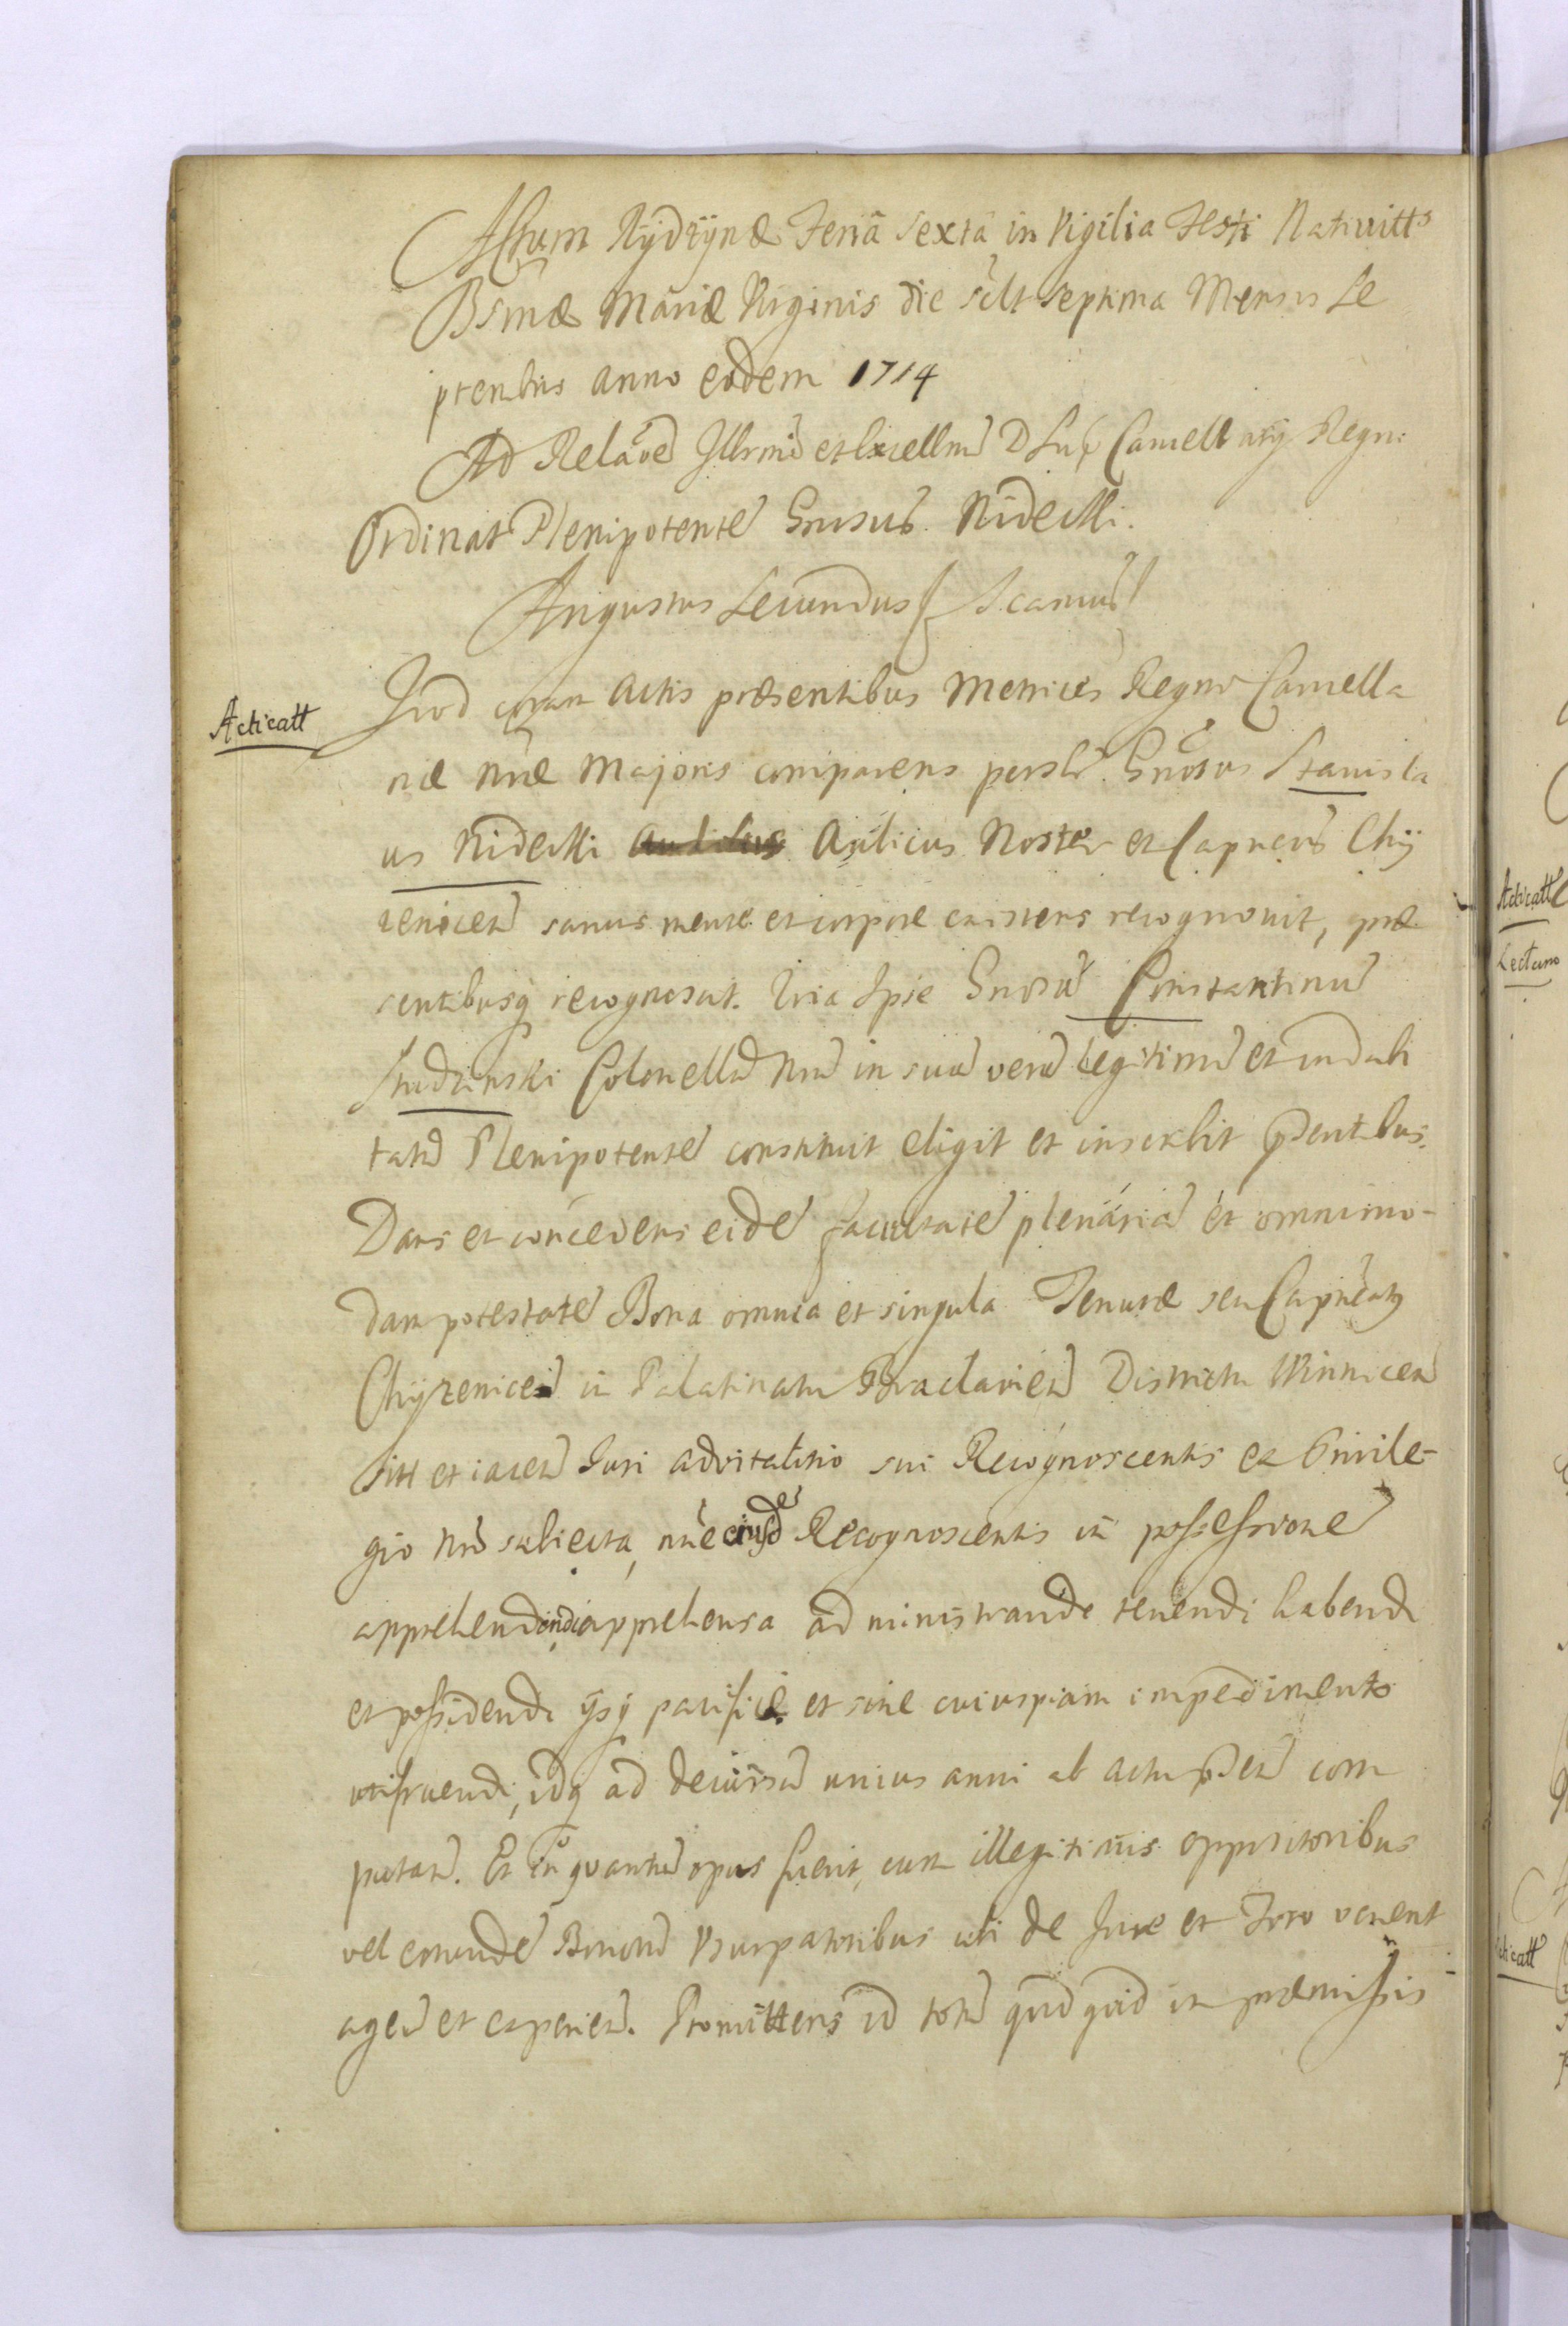 Actum Rydzynæ Feriâ sextâ in Vigilia Festi Nativitts
Bsmæ Mariæ Virginis die scilt septima Mensis Se
ptembris anno eodem 1714
Ad Relaõe Illrmi et Excellmi D Sup Cancellarij Regni
Ordinat Plenipotente Gnrsus Nidecki.
Augustus Secundus
Quod coram actis præsentibus Metrices Regni Cancella
Acticatt
riæ nræ Majoris comparens persler Gnrosus Stanisla
us Nidecki Aulicus Noster et Capneus Chy
renicen sanus mente et corpore existens recognovit, præ
sentibusq recognoscit. Quia Ipse Gnrosu Constantinu
Studzinski Colonellu nru in suu veru legitimu et indubi
tatu Plenipotente constituit eligit et inscribit pdentibus.
Dans et concedens eide facultate plenária et omnimo-
dam potestate Bona omnia et singula Tenutæ seu Capneatg
Chyrenicen in Palatinatu Braclavien Districtu Winnicen
sitt et iacen Juri advitalitio sui Recognoscentis ex Privile-
gio nro subiecta, nõe eiusde Recognoscentis in possessione
apprehendendi apprehensa administrandi tenendi habendi
et possidendi ysq pacificé et sine cuiuspiam impedimento
utifruendi, idq ad decursu unius anni ab actu pden com
putan. Et in quantu opus fuerit, cum illegitimis oppositoribus
vel eorunde Bonoru Usurpatoribus ubi de Jure et Foro venerit
agen et experien. Promittens id totu quidquid in præmissis
Acticatt
Lect